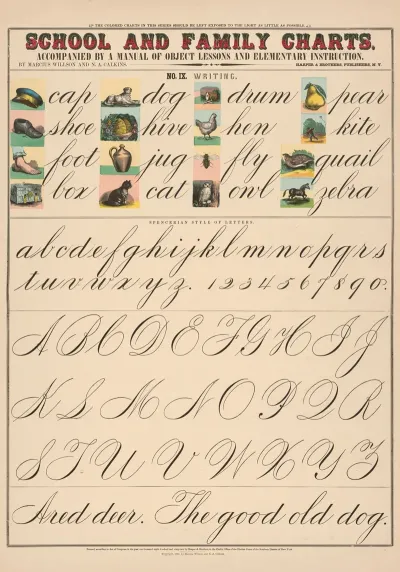 SCHOOL AND FAMILY CHARTS,
ACCOMPANIED BY A MANUAL OF OBJECT LESSONS AND ELEMENTARY INSTRUCTION,
BY MARCIUS WILLSON AND N. A. CALKINS. HARPER & BROTHERS, PUBLISHERS, N. Y.
NO. IX. WRITING.
cap dog drum pear
shoe hive hen kite
foot jug fly quail
box cat owl zebra
SPENCERIAN STYLE OF LETTERS.
a b c d e f g h i j k l m n o p q r s
t u v w x y z. 1 2 3 4 5 6 7 8 9 0.
A B C D E F G H I J
K L M N O P Q R
S T U V W X Y Z
A red deer. The good old dog.